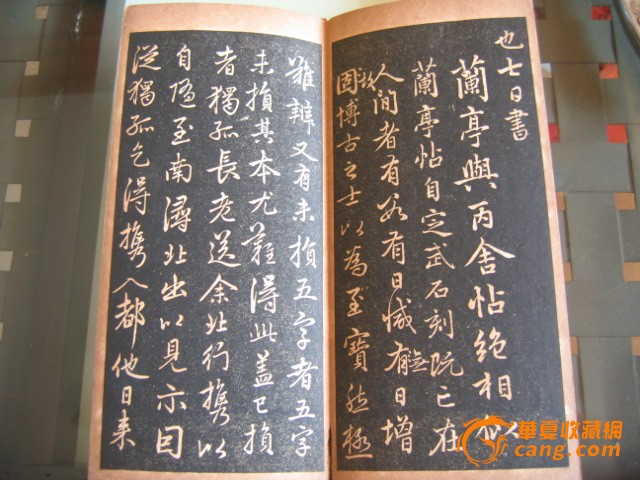 也七日書
蘭亭與丙舍帖絕相似
蘭亭帖自定武石刻既亡在
人間者有數有日減無日增
博古之士以為至寶然極
難辨又有未損五字者五字
未損其本尤難得此蓋已損
者獨孤長老送余北行攜以
自隨至南潯北出以見示因
從獨孤乞得攜入都他日來
華夏收藏網
cang.com